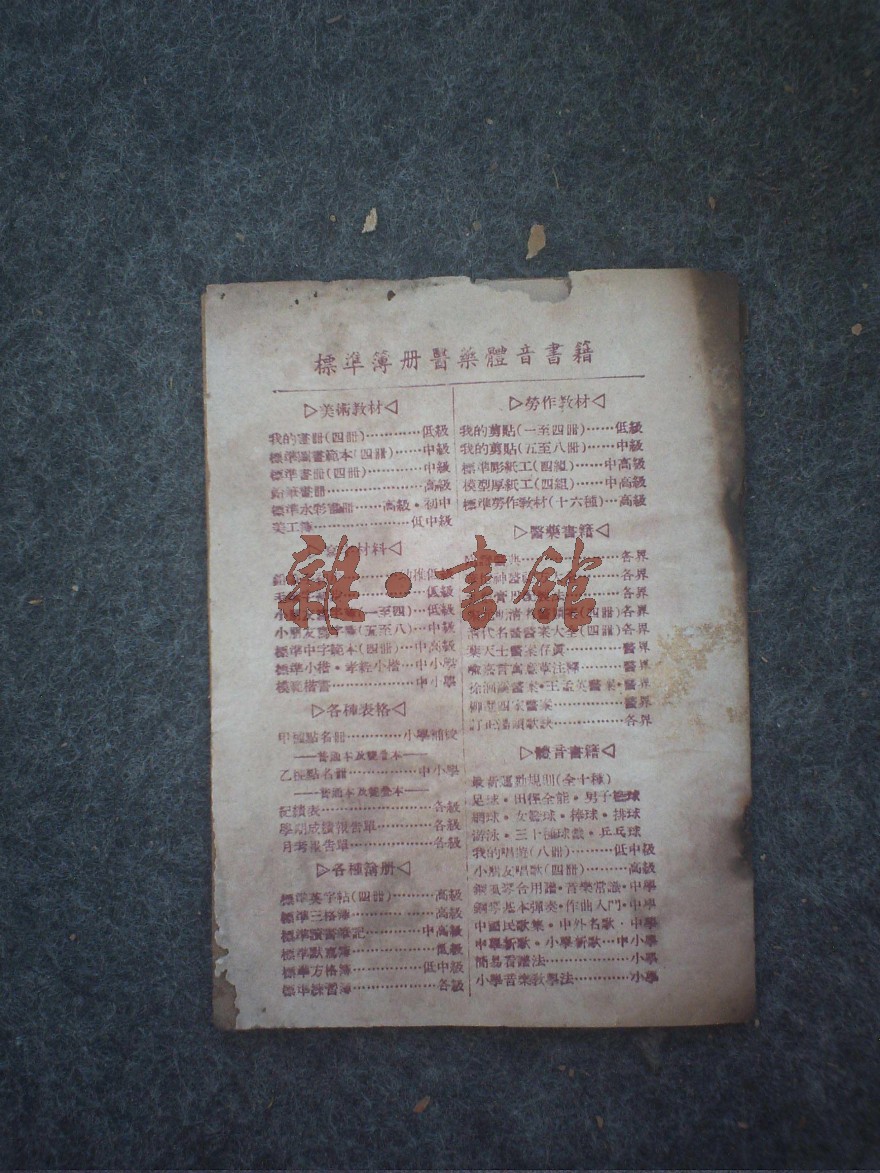 標準簿册醫藥體音書籍
▷美術教材◁
我的畫冊(四冊)…………低級
標準圖畫範本(四冊)………中級
標準畫冊(四冊)…………中級
鉛筆畫冊…………………高級
標準水彩畫冊……高級・初中
美工簿…………………低中級
材料◁
低級
小朋友 (一至四)…低級
小朋友寫字簿(五至八)…中級
標準中字範本(四冊)…中高級
標準小楷・孝經小楷…中小學
模範楷書………………中小學
▷各種表格◁
甲種點名冊…………小學補校
——普通本及雙聲本——
乙種點名冊…………中小學
——普通本及雙聲本——
記績表…………………各級
學期成績報告單…………各級
月考報告單………………各級
▷各種簿册◁
標準英字帖(四冊)………高級
標準三格簿………………高級
標準讀書筆記…………中高級
標準默寫簿………………低級
標準方格簿……………低中級
標準練習簿………………各級
▷勞作教材◁
我的剪貼(一至四冊)……低級
我的剪貼(五至八冊)……中級
標準彫紙工(四組)……中高級
模型厚紙工(四組)……中高級
標準勞作教材(十六種)…高級
▷醫藥書籍◁
各界
各界
各界
(四冊)各界
清代名醫醫案大全(四冊)各界
葉天士醫案存眞…………醫界
醫界
徐洄溪醫案・王孟英醫案・醫界
柳選四家醫案……………醫界
訂正湯頭歌訣……………各界
▷體音書籍◁
最新運動規則(全十種)
足球・田徑全能・男子籃球
網球・女籃球・棒球・排球
游泳・三十種球戲・乒乓球
我的唱遊(八冊)………低中級
小朋友唱歌(四冊)………高級
鋼風琴合用譜・音樂常識・中學
鋼琴基本彈奏・作曲入門・中學
中國民歌集・中外名歌・中學
中學新歌・小學新歌…中小學
簡易看譜法………………小學
小學音樂教學法…………小學
雜・書館